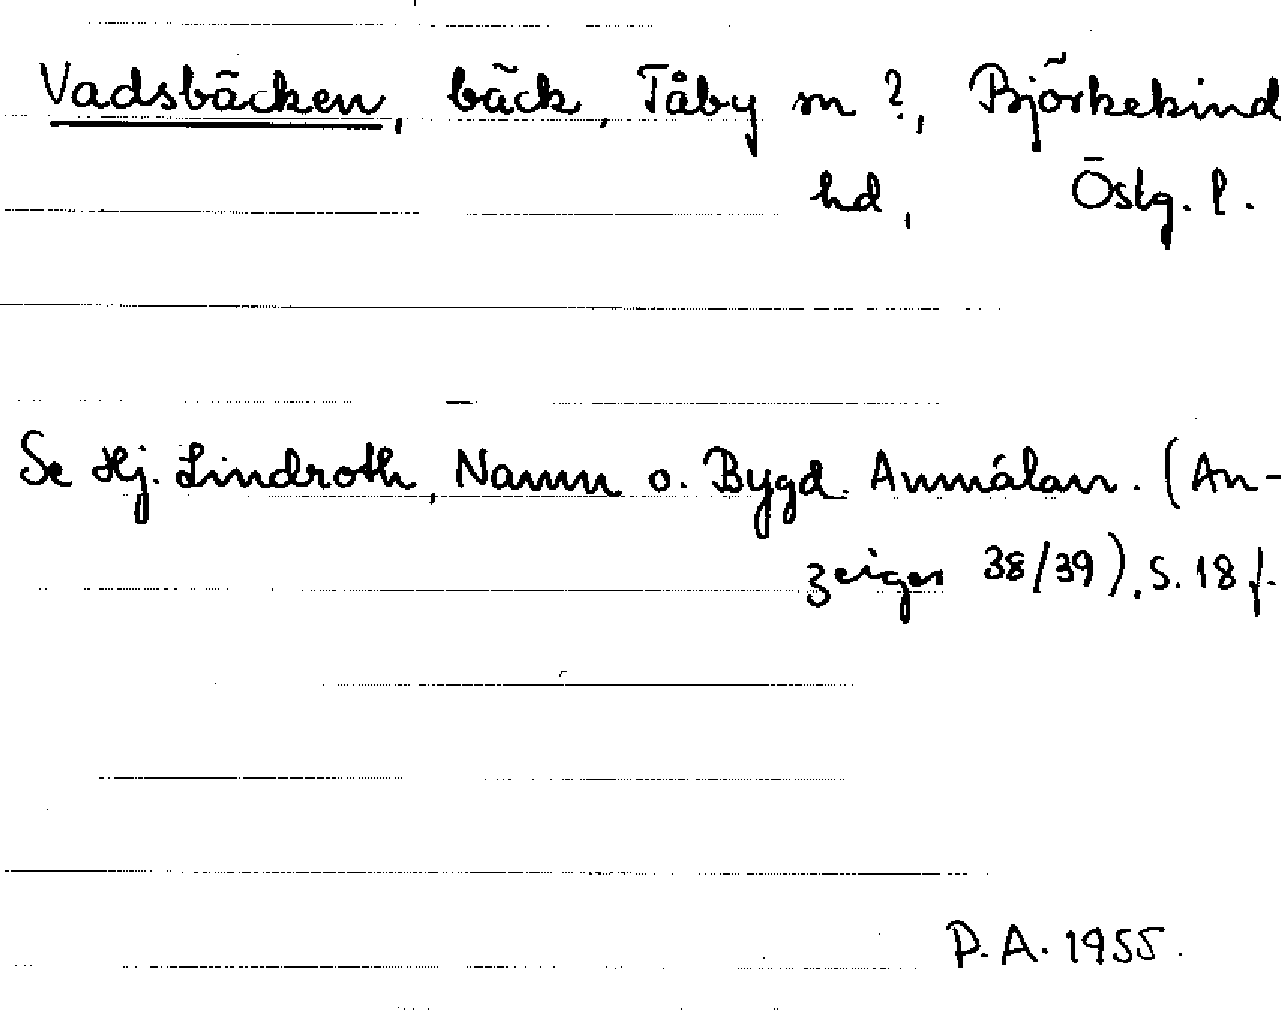 Vadsbäcken, bäck, Tåby sn ?, Björkekind
hd, Östg. l.
Se Hj. Lindroth, Namn o. Bygd. Anmälan. (An-
zeiger 38/39). S. 18 f.
P. A. 1955.